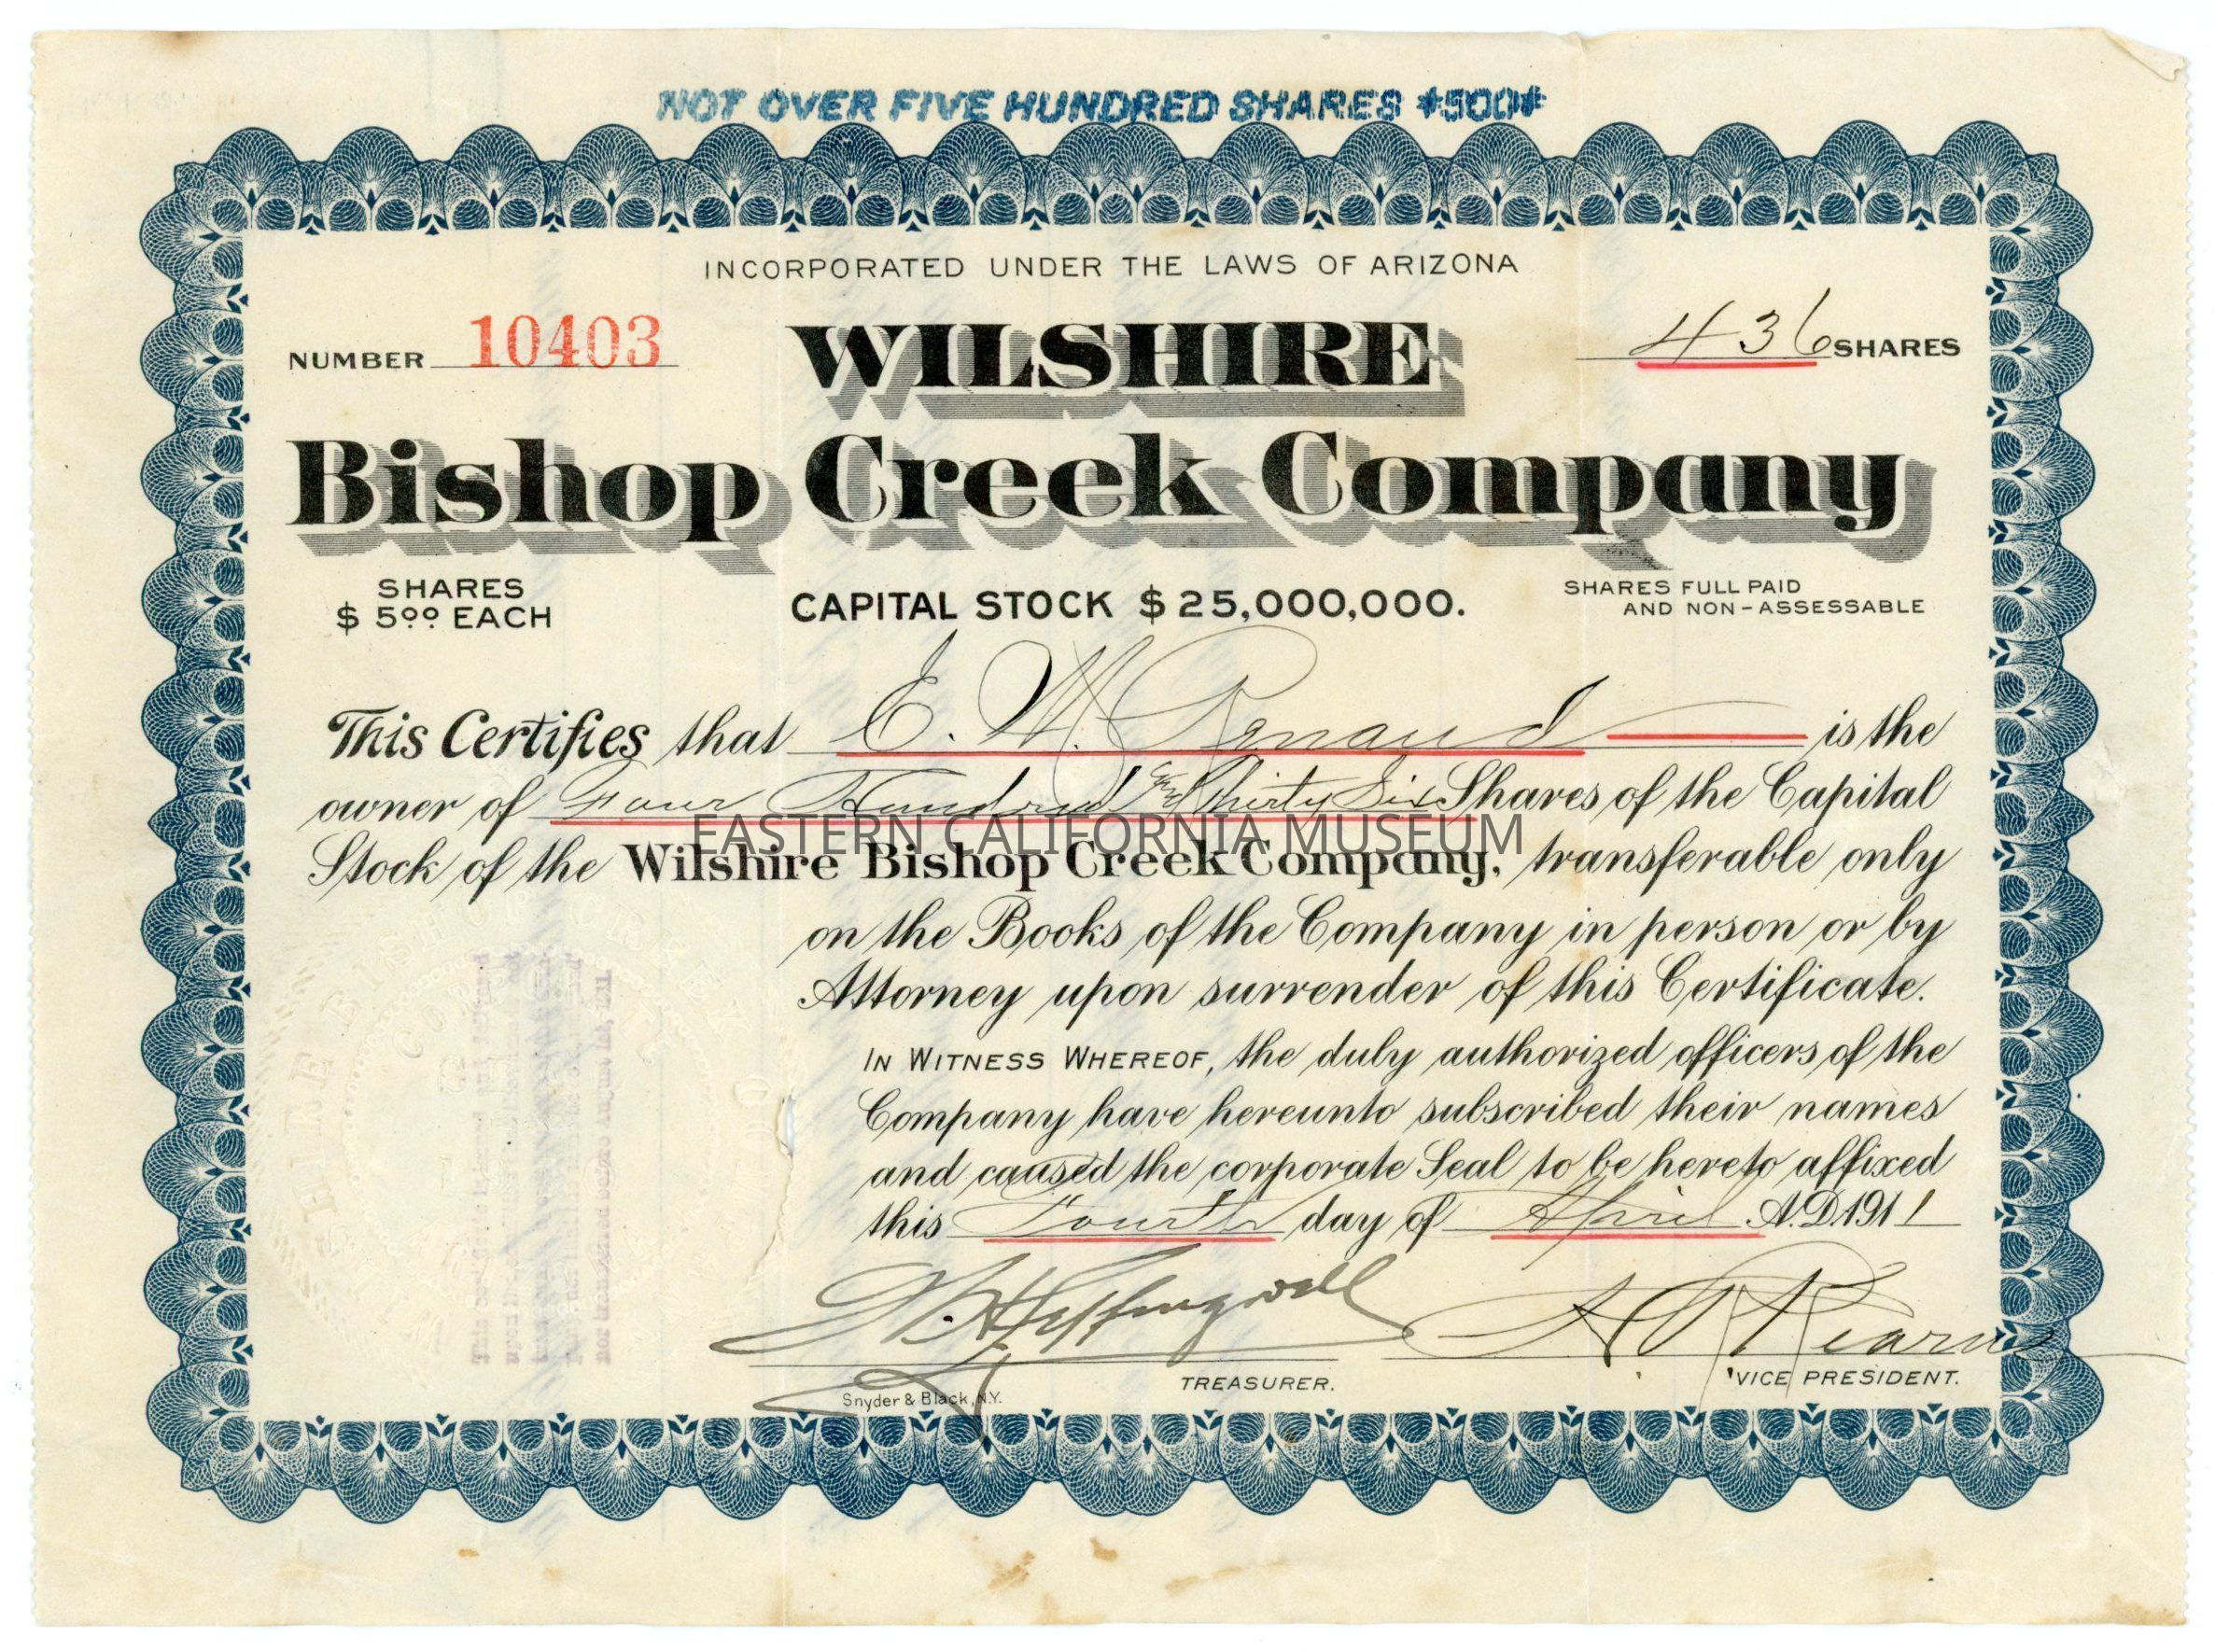 NOT OVER FIVE HUNDRED SHARES *500*
INCORPORATED UNDER THE LAWS OF ARIZONA
NUMBER 10403
WILSHIRE
436 SHARES
Bishop Creek Company
SHARES
$ 5.00 EACH
CAPITAL STOCK $25,000,000.
SHARES FULL PAID
AND NON-ASSESSABLE
This Certifies that E. M. Arnaud is the
owner of Four Hundred and Thirty Six Shares of the Capital
EASTERN CALIFORNIA MUSEUM
Stock of the Wilshire Bishop Creek Company, transferable only
on the Books of the Company in person or by
Attorney upon surrender of this Certificate.
IN WITNESS WHEREOF, the duly authorized officers of the
Company have hereunto subscribed their names
and caused the corporate Seal to be hereto affixed
this Fourth day of April A.D. 1911
TREASURER.
VICE PRESIDENT.
Snyder & Black, N.Y.